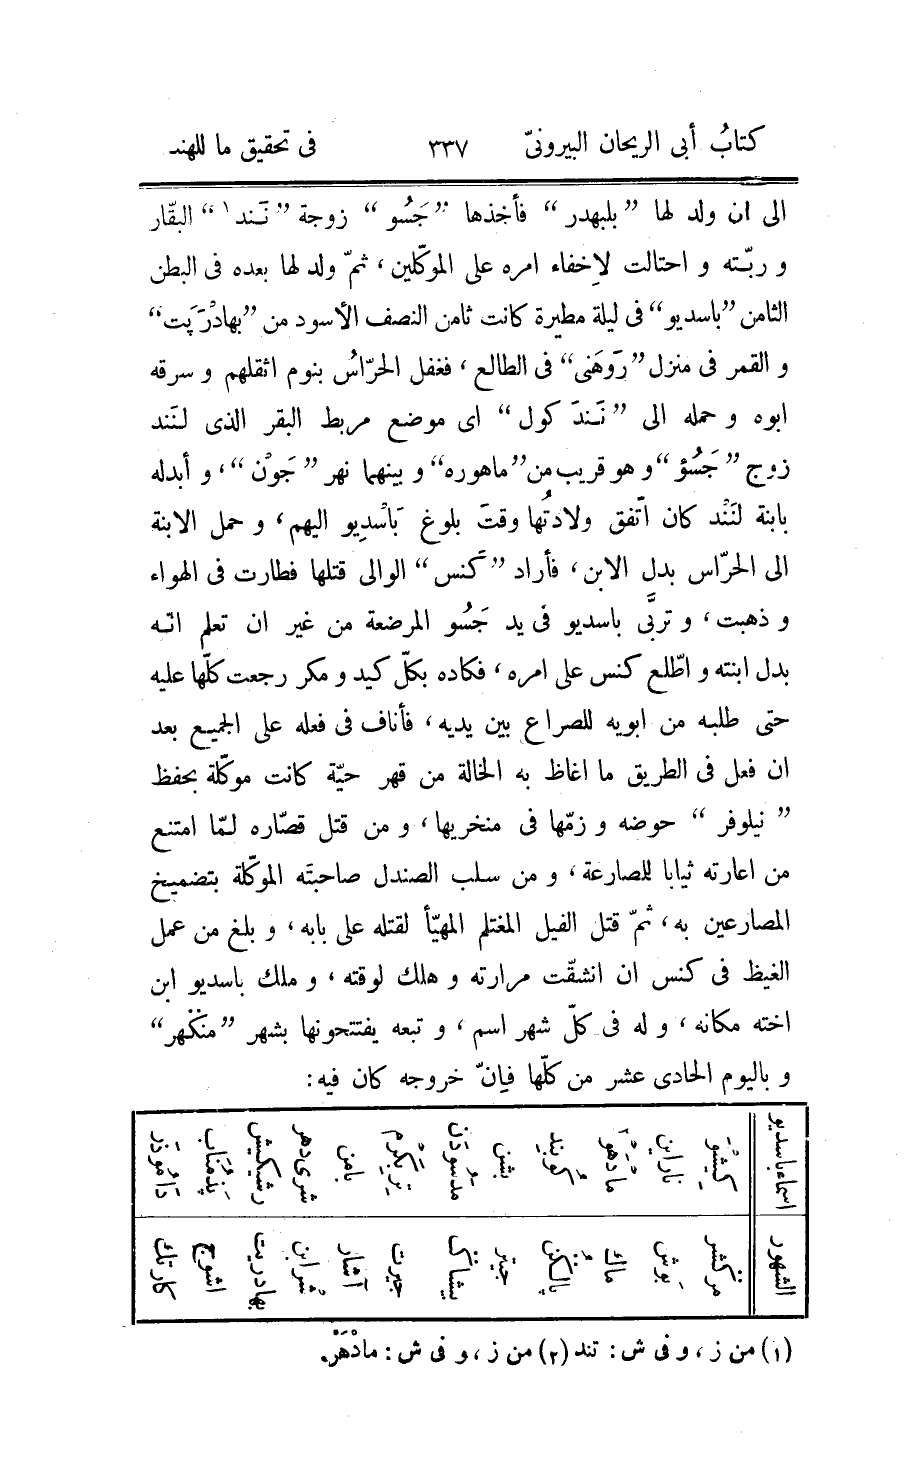 كتابُ أبى الريحان البيرونىّ ٣٣٧ فى تحقيق ما للهند
الى ان ولد لها ”بلبهدر“ فأخذها ”جَسُو“ زوجة ”نَند١“ البقّار
و ربّته و احتالت لاِخفاء امره على الموكّلين، ثمّ ولد لها بعده فى البطن
الثامن ”باسديو“ فى ليلة مطيرة كانت ثامن النصف الأسود من ”بهادْرَپَت“
و القمر فى منزل ”رَوهَنى“ فى الطالع، فغفل الحرّاسُ بنوم اثقلهم و سرقه
ابوه و حمله الى ”نَندَ كول“ اى موضع مربط البقر الذى لنَند
زوج ”جَسُؤ“ و هو قريب من ”ماهوره“ و بينهما نهر ”جَوْن“، و أبدله
بابنة لنَنْد كان اتّفق ولادتُها وقتَ بلوغ بَاسْدِيو اليهم، و حمل الابنة
الى الحرّاس بدل الابن، فأراد ”كَنس“ الوالى قتلها فطارت فى الهواء
و ذهبت، و تربَّى باسديو فى يد جَسُو المرضعة من غير ان تعلم انّه
بدل ابنته و اطّلع كنس على امره، فكاده بكلّ كيد و مكر رجعت كلّها عليه
حتى طلبه من ابويه للصراع بين يديه، فأناف فى فعله على الجميع بعد
ان فعل فى الطريق ما اغاظ به الخالة من قهر حيّة كانت موكّلة بحفظ
”نيلوفر“ حوضه و زمّها فى منخريها، و من قتل قصّاره لمّا امتنع
من اعارته ثيابا للصارعة، و من سلب الصندل صاحبتَه الموكّلة بتضميخ
المصارعين به، ثمّ قتل الفيل المغتلم المهيّأ لقتله على بابه، و بلغ من عمل
الغيظ فى كنس ان انشقّت مرارته و هلك لوقته، و ملك باسديو ابن
اخته مكانه، و له فى كلّ شهر اسم، و تبعه يفتتحونها بشهر ”منكهر“
و باليوم الحادى عشر من كلّها فإنّ خروجه كان فيه:
اسماء باسديو كِيشْوَ ناراين مادُهوُ٢ كُوبِند بشن مدسُودَن تِرِبِكرُم بامن شرى دهر رشيكيش پَدْمُنَاب دَامُوذَر
الشهور مركشر بَوش ماك پالكُن جيتر بيشاك جيرت آشار شُرابن بهادريت اشوج كارتك
(١) من ز، و فى ش: تند (٢) من ز، و فى ش: مادْهَرْ.